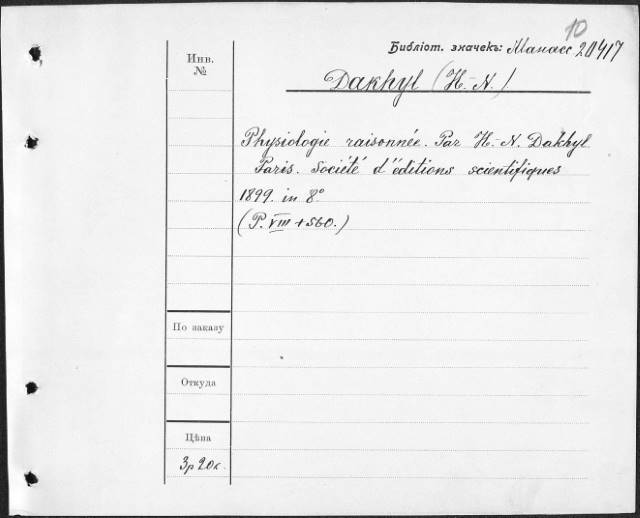 10
Библіот. значекъ: Манасс 20417
Инв.
№
Dakhyl (H.-N.)
Physiologie raisonnée. Par H.-N. Dakhyl
Paris. Société d'éditions scientifiques
1899. in 8°
(P. VIII + 560.)
По заказу
Откуда
Цѣна
3р 20к.